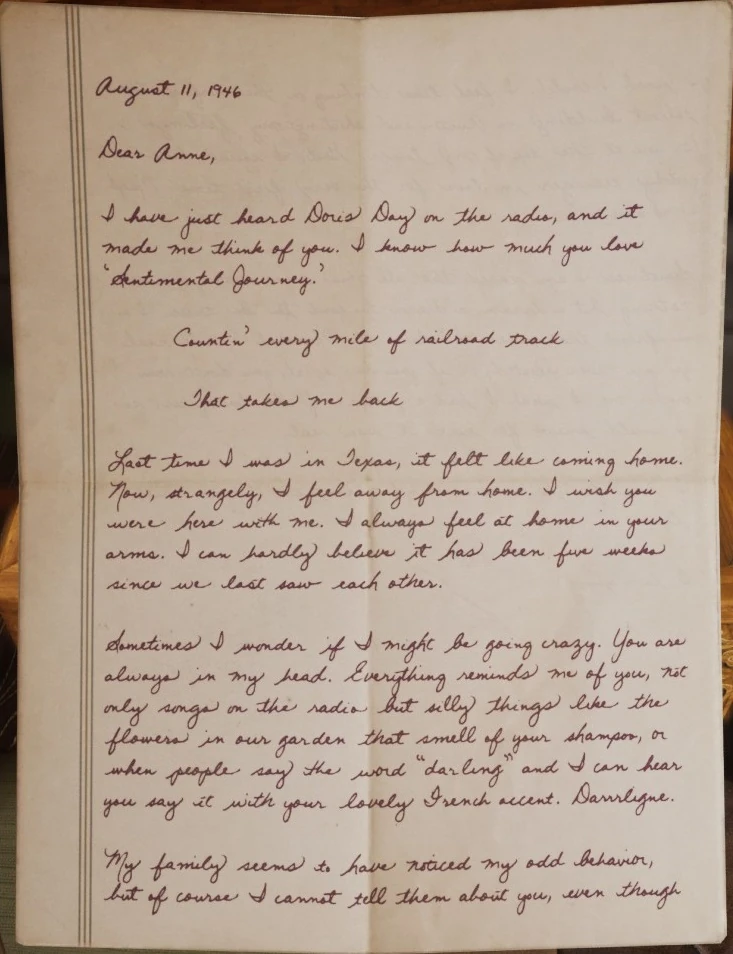 August 11, 1946
Dear Anne,
I have just heard Doris Day on the radio, and it
made me think of you. I know how much you love
'Sentimental Journey.'
Countin' every mile of railroad track
That takes me back
Last time I was in Texas, it felt like coming home.
Now, strangely, I feel away from home. I wish you
were here with me. I always feel at home in your
arms. I can hardly believe it has been five weeks
since we last saw each other.
Sometimes I wonder if I might be going crazy. You are
always in my head. Everything reminds me of you, not
only songs on the radio but silly things like the
flowers in our garden that smell of your shampoo, or
when people say the word "darling" and I can hear
you say it with your lovely French accent. Darrrligne.
My family seems to have noticed my odd behavior,
but of course I cannot tell them about you, even though